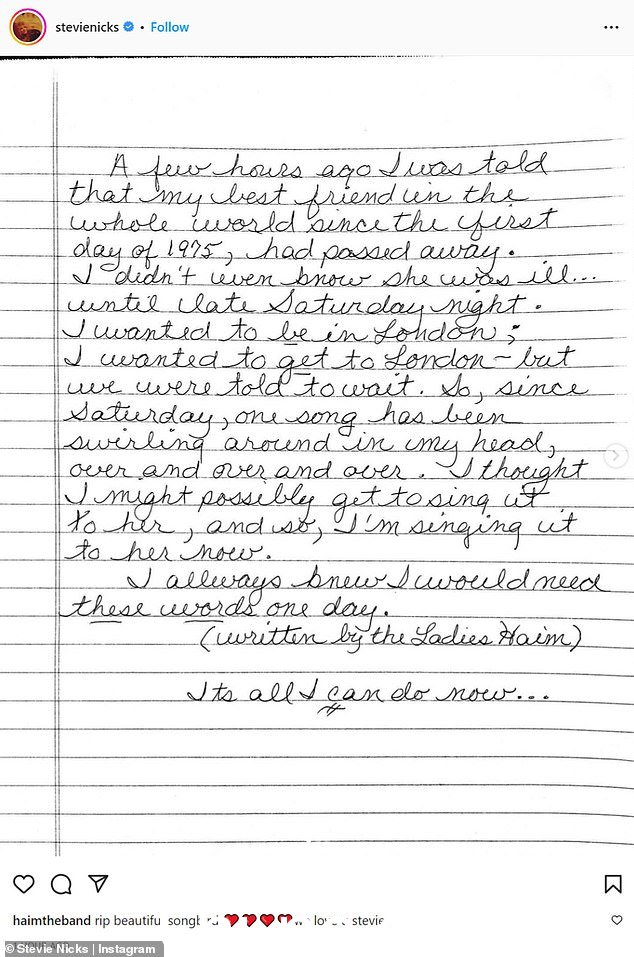 stevienicks • Follow
A few hours ago I was told
that my best friend in the
whole world since the first
day of 1975, had passed away.
I didn't even know she was ill...
until late Saturday night.
I wanted to be in London;
I wanted to get to London - but
we were told to wait. So, since
Saturday, one song has been
swirling around in my head,
over and over and over. I thought
I might possibly get to sing it
to her, and so, I'm singing it
to her now.
I allways knew I would need
these words one day.
(written by the Ladies Haim)
Its all I can do now...
haimtheband rip beautifu stevie
© Stevie Nicks | Instagram